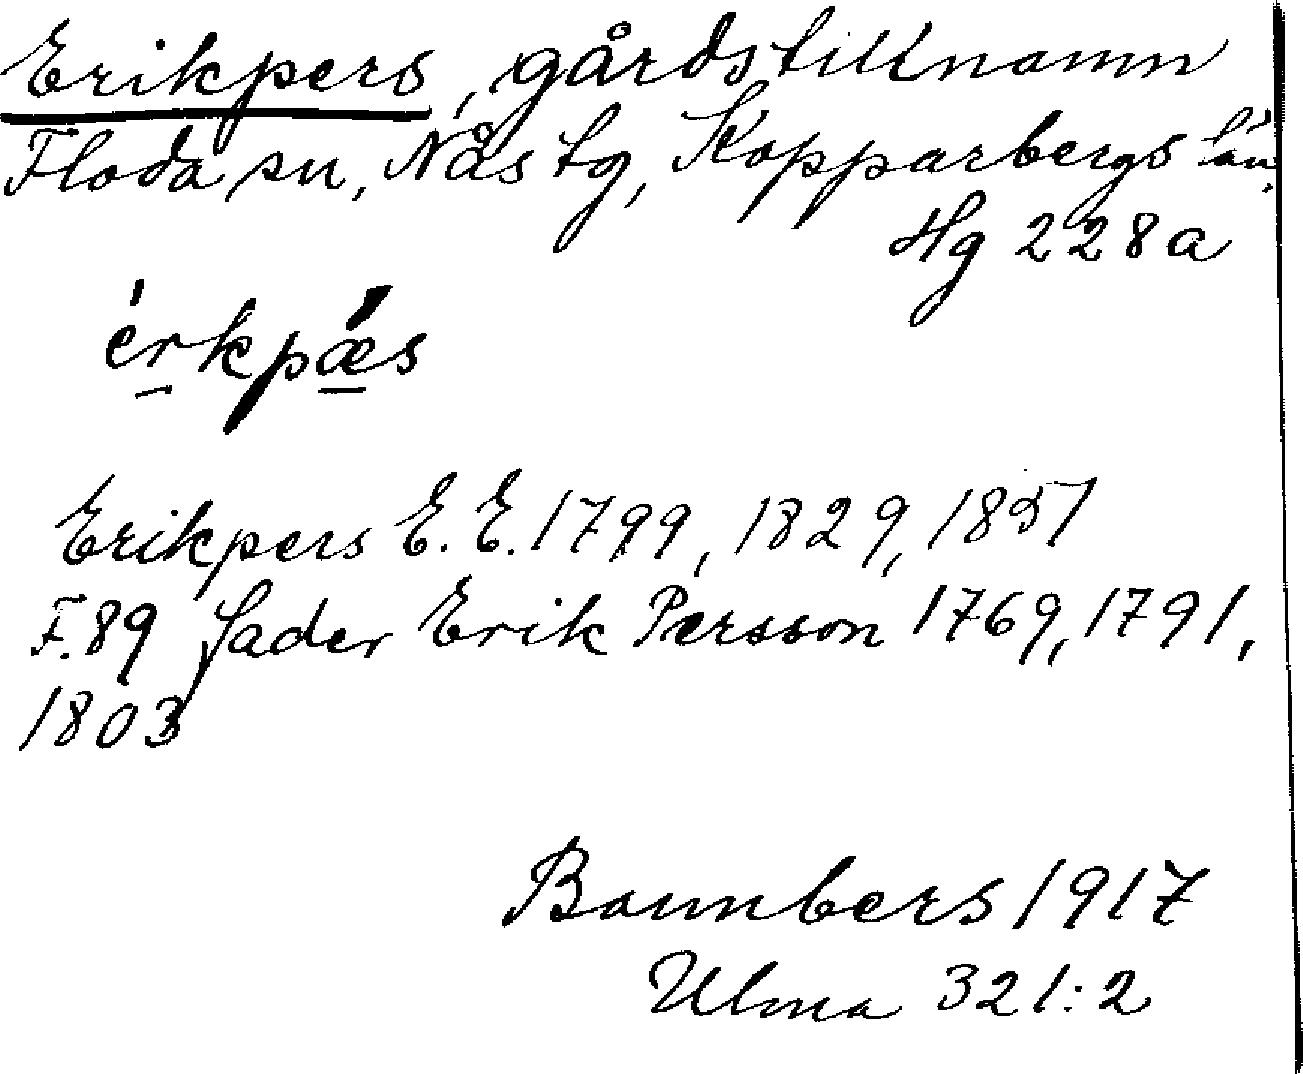 Erikpers, gårdstillnamn
Floda sn, Nås tg, Kopparbergs län.
Hg 228a
érkpǽs
Erikpers E. E. 1799, 1829, 1851
F. 89 fader Erik Persson 1769, 1791,
1803
Bannbers 1917
Ulma 321:2